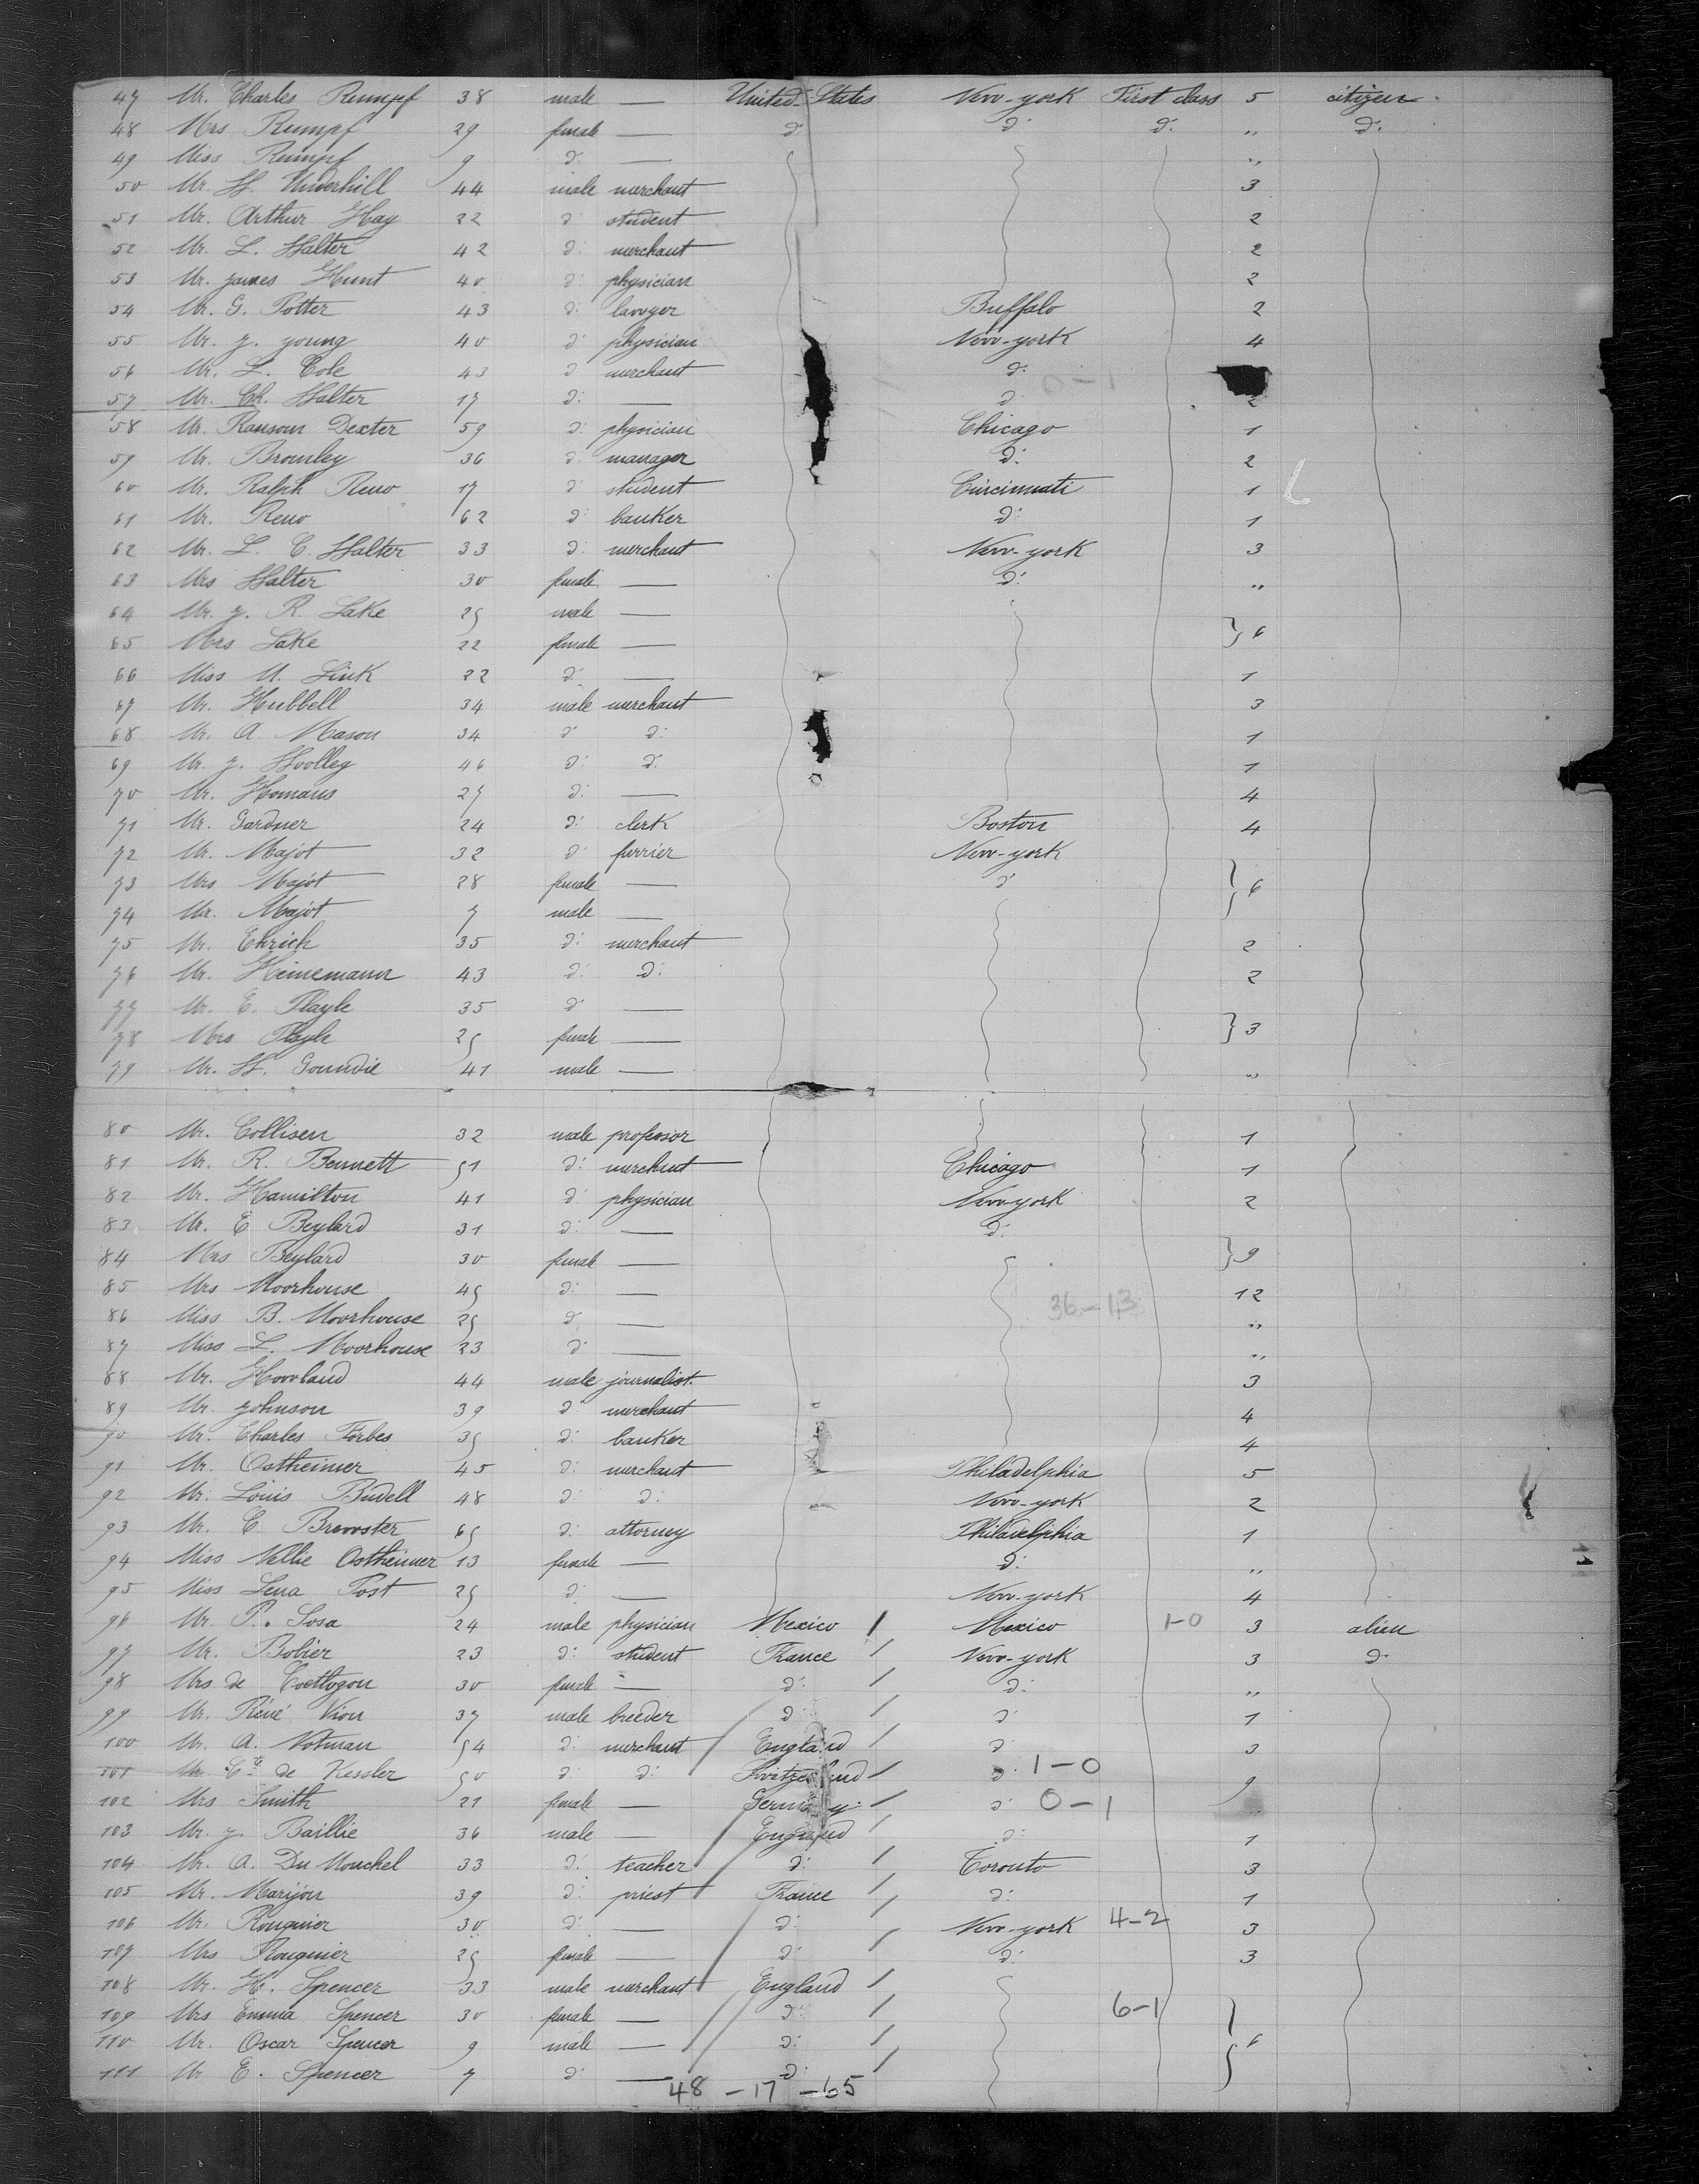 47 Mr. Charles Rumpf 38 male — United States New-york First class 5 citizen
48 Mrs Rumpf 29 female — d: d: d: " d:
49 Miss Rumpf 9 d: — "
50 Mr. H. Underhill 44 male merchant 3
51 Mr. Arthur Hay 22 d: student 2
52 Mr. L. Walter 42 d: merchant 2
53 Mr. James Hunt 40 d: physician 2
54 Mr. G. Potter 43 d: lawyer Buffalo 2
55 Mr. J. young 40 d: physician New-york 4
56 Mr. L. Cole 43 d: merchant d: 0-1
57 Mr. Ch. Walter 17 d: — d: 2
58 Mr. Ransom Dexter 59 d: physician Chicago 1
59 Mr. Bromley 36 d: manager d: 2
60 Mr. Ralph Reno 17 d: student Cincinnati 1
61 Mr. Reno 62 d: banker d: 1
62 Mr. L. C. Walter 33 d: merchant New-york 3
63 Mrs Walter 30 female — d: "
64 Mr. J. R. Lake 25 male —
65 Mrs Lake 22 female — } 6
66 Miss M. Link 22 d: — 1
67 Mr. Hubbell 34 male merchant 3
68 Mr. A. Mason 34 d: d: 1
69 Mr. J. Woolley 46 d: d: 1
70 Mr. Homans 27 d: — 4
71 Mr. Gardner 24 d: clerk Boston 4
72 Mr. Majot 32 d: furrier New-york
73 Mrs Majot 28 female — d: } 6
74 Mr. Majot 7 male —
75 Mr. Ehrich 35 d: merchant 2
76 Mr. Heinemann 43 d: d: 2
77 Mr. E. Playle 35 d: —
78 Mrs Playle 25 female — } 3
79 Mr. W. Goundie 41 male — "
80 Mr. Collisen 32 male professor 1
81 Mr. R. Bennett 51 d: merchant Chicago 1
82 Mr. Hamilton 41 d: physician New-york 2
83 Mr. E Beylard 31 d: — d:
84 Mrs Beylard 30 female — } 9
85 Mrs Moorhouse 45 d: — 12
86 Miss B. Moorhouse 25 d: — 36-13 "
87 Miss L. Moorhouse 23 d: — "
88 Mr. Howland 44 male journalist. 3
89 Mr. Johnson 39 d: merchant 4
90 Mr. Charles Forbes 35 d: banker 4
91 Mr. Ostheimer 45 d: merchant Philadelphia 5
92 Mr. Louis Budell 48 d: d: New-york 2
93 Mr. C. Brewster 65 d: attorney Philadelphia 1
94 Miss Nellie Ostheimer 13 female — d: "
95 Miss Lena Post 25 d: — New-york 4
96 Mr. P. Sosa 24 male physician Mexico / Mexico 1-0 3 alien
97 Mr. Bobier 23 d: student France / New-york 3 d:
98 Mrs de Coetlogon 30 female — d: / d: "
99 Mr. Réné Vion 37 male breeder d: / d: 1
100 Mr. A. Notman 54 d: merchant England / d: 3
101 Mr. Cte de Kessler 50 d: d: Switzerland / d: 1-0 9
102 Mrs Smith 21 female — Germany / d: 0-1
103 Mr. J. Baillie 36 male — England / d: 1
104 Mr. A. Du Mouchel 33 d: teacher d: / Toronto 3
105 Mr. Marijon 39 d: priest France / d: 1
106 Mr. Rouguier 30 d: — d: / New-york 4-2 3
107 Mrs Rouguier 25 female — d: / d: 3
108 Mr. H. Spencer 33 male merchant England /
109 Mrs Emma Spencer 30 female — d: / 6-1
110 Mr. Oscar Spencer 9 male — d: / } 6
111 Mr E. Spencer 7 d: — d: /
48 - 17 - 65